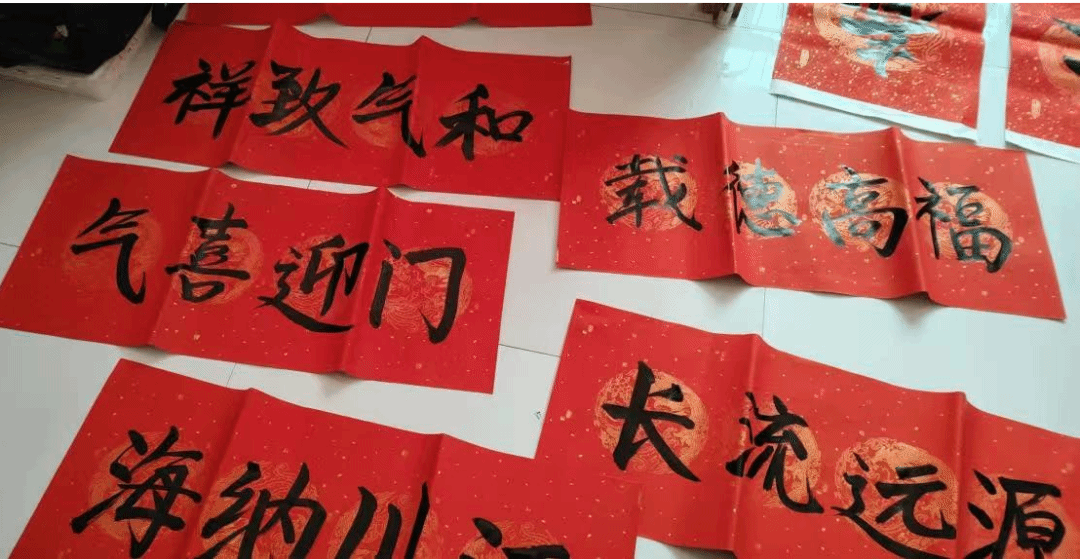 和气致祥
福高德载
门迎喜气
源远流长
川纳海